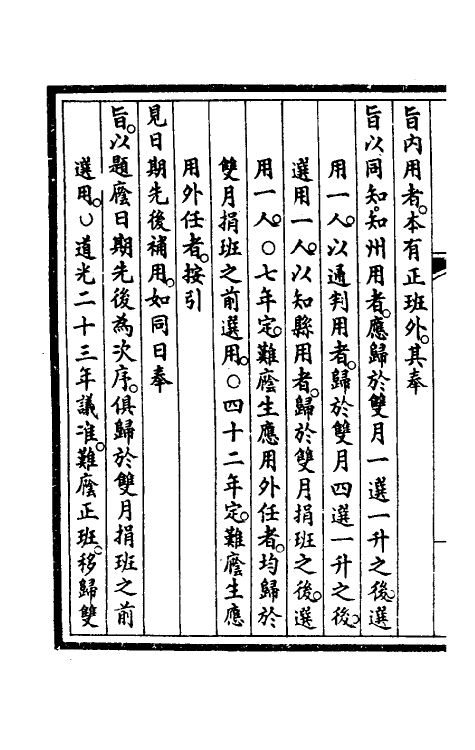 旨內用者。本有正班外。其奉
旨以同知。知州用者。應歸於雙月一選一升之後。選
用一人。以通判用者。歸於雙月四選一升之後。
選用一人。以知縣用者。歸於雙月捐班之後。選
用一人。○七年定。難廕生應用外任者。均歸於
雙月捐班之前選用。○四十二年定。難廕生應
用外任者。按引
見日期先後補用。如同日奉
旨。以題廕日期先後為次序。俱歸於雙月捐班之前
選用。○道光二十三年議准。難廕正班。移歸雙